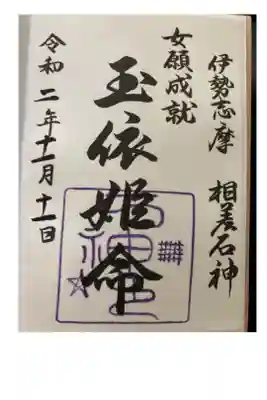 伊勢志摩 相差石神
女願成就
玉依姫命
令和二年十一月十一日